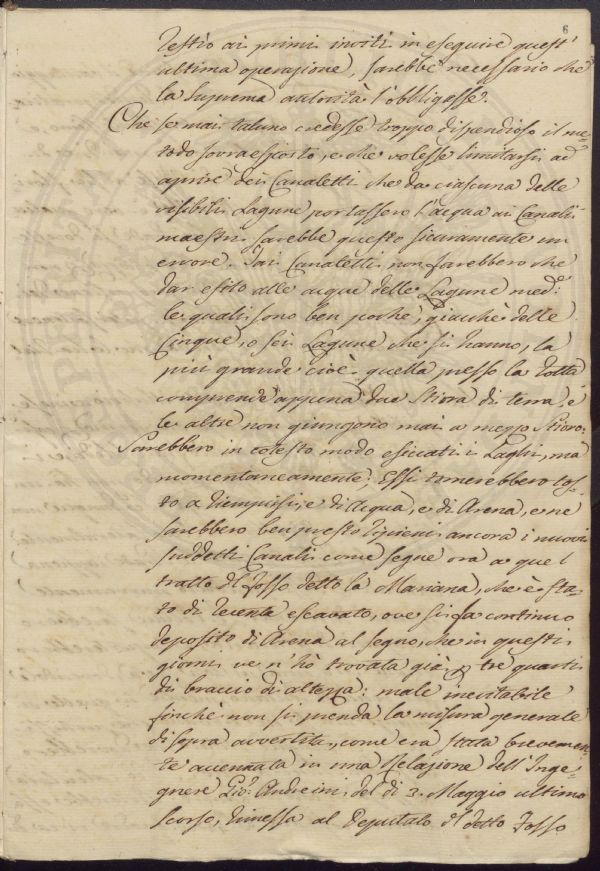 6
restìo ai primi inviti in eseguire quest'
ultima operazione, sarebbe necessario che
la Suprema autorità l'obbligasse.
Che se mai taluno credesse troppo dispendioso il me¬
todo sovraesposto, e che volesse limitarsi ad
aprire dei Canaletti che da ciascuna delle
visibili Lagune portassero l'acqua ai Canali
maestri sarebbe questo sicuramente un
errore. Tai Canaletti non farebbero che
dar esito alle acque delle Lagune med.e
le quali sono ben poche, giacchè delle
Cinque, o sei Lagune che si hanno, la
più grande cioè quella presso la Rotta
comprende appena due Stiora di terra, e
le altre non giungono mai a mezzo Stioro.
Sarebbero in cotesto modo esiccati i Laghi, ma
momentaneamente: Essi tornerebbero tos¬
to a riempirsi, e di Acqua, e di Arena, e ne
sarebbero ben presto ripieni ancora i nuovi
suddetti Canali come segue ora a quel
tratto del Fosso detto la Mariana, che è sta¬
to di recente escavato, ove si fa continuo
deposito di Arena al segno, che in questi
giorni ve n'hò trovata già tre quarti
di braccio di altezza: male inevitabile
finchè non si prenda la misura generale
di sopra avvertita, come era stata brevemen¬
te accennata in una Relazione dell'Inge¬
gnere Gio. Andreini del dì 3. Maggio ultimo
scorso, rimessa al Deputato del detto Fosso